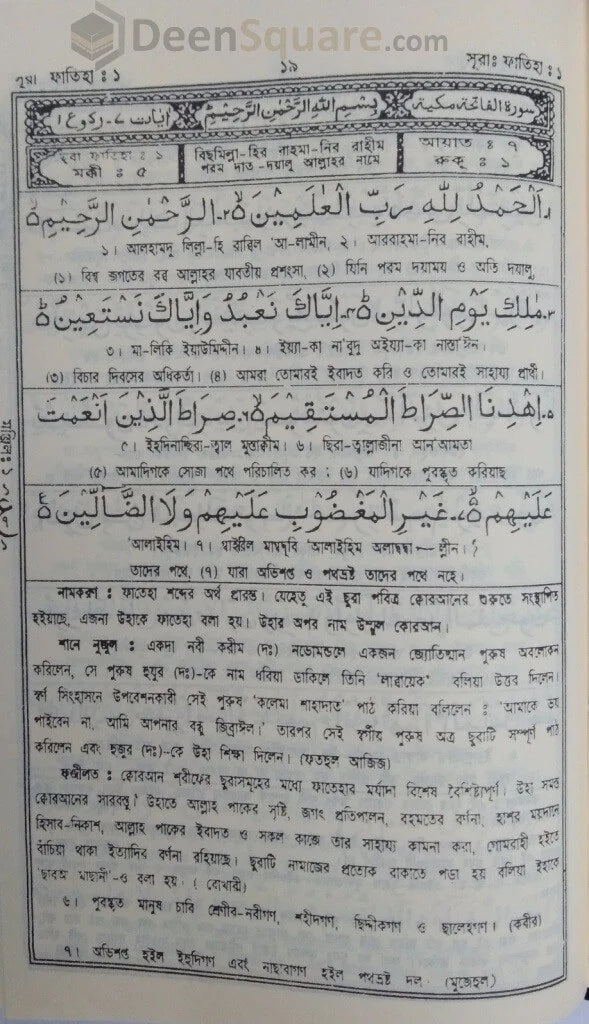 DeenSquare.com
সূরা ফাতিহা : ১ ১৯ সূরাঃ ফাতিহা : ১
سورة الفاتحة مكية بِسْمِ اللهِ الرَّحْمٰنِ الرَّحِيْمِ اٰيات ٧- ركوع ١
সূরা ফাতিহা : ১ বিছমিল্লা-হির রাহমা-নির রাহীম আয়াত : ৭
মক্কী : ৫ পরম দাতা-দয়ালু আল্লাহর নামে রুকু : ১
١. اَلْحَمْدُ لِلّٰهِ رَبِّ الْعٰلَمِيْنَ ۙ ٢. الرَّحْمٰنِ الرَّحِيْمِ ۙ
১। আলহামদু লিল্লা-হি রাব্বিল 'আ-লামীন, ২। আররাহমা-নির রাহীম,
(১) বিশ্ব জগতের রব আল্লাহর যাবতীয় প্রশংসা, (২) যিনি পরম দয়াময় ও অতি দয়ালু,
٣. مٰلِكِ يَوْمِ الدِّيْنِ ؕ ٤. اِيَّاكَ نَعْبُدُ وَاِيَّاكَ نَسْتَعِيْنُ ؕ
৩। মা-লিকি ইয়াউমিদ্দীন। ৪। ইয়্যা-কা না'বুদু অইয়্যা-কা নাস্তা'ঈন।
(৩) বিচার দিবসের অধিকর্তা। (৪) আমরা তোমারই ইবাদত করি ও তোমারই সাহায্য প্রার্থী।
٥. اِهْدِنَا الصِّرَاطَ الْمُسْتَقِيْمَ ۙ ٦. صِرَاطَ الَّذِيْنَ اَنْعَمْتَ
৫। ইহদিনাছছিরা-ত্বাল মুস্তাক্বীম। ৬। ছিরা-ত্বাল্লাজীনা আন'আমতা
(৫) আমাদিগকে সোজা পথে পরিচালিত কর ; (৬) যাদিগকে পুরস্কৃত করিয়াছ
عَلَيْهِمْ ۙ ٧. غَيْرِ الْمَغْضُوْبِ عَلَيْهِمْ وَلَا الضَّآلِّيْنَ
'আলাইহিম। ৭। গাইরিল মাগদূবি 'আলাইহিম অলাদ্দ্বা — ল্লীন।
তাদের পথে, (৭) যারা অভিশপ্ত ও পথভ্রষ্ট তাদের পথে নহে।
নামকরণ : ফাতেহা শব্দের অর্থ প্রারম্ভ। যেহেতু এই ছুরা পবিত্র কোরআনের শুরুতে সংস্থাপিত
হইয়াছে, এজন্য উহাকে ফাতেহা বলা হয়। উহার অপর নাম উম্মুল কোরআন।
শানে নুযুল : একদা নবী করীম (দঃ) নভোমন্ডলে একজন জ্যোতিষ্মান পুরুষ অবলোকন
করিলেন, সে পুরুষ হুযুর (দঃ)-কে নাম ধরিয়া ডাকিলে তিনি 'লাব্বায়েক' বলিয়া উত্তর দিলেন।
স্বর্ণ সিংহাসনে উপবেশনকারী সেই পুরুষ 'কলেমা শাহাদাত' পাঠ করিয়া বলিলেন : 'আমাকে ভয়
পাইবেন না, আমি আপনার বন্ধু জিব্রাঈল।' তারপর সেই স্বর্গীয় পুরুষ অত্র ছুরাটি সম্পূর্ণ পাঠ
করিলেন এবং হুজুর (দঃ)-কে উহা শিক্ষা দিলেন। (ফতহুল আজিজ)
ফজীলত : কোরআন শরীফের ছুরাসমূহের মধ্যে ফাতেহার মর্যাদা বিশেষ বৈশিষ্ট্যপূর্ণ। উহা সমগ্র
কোরআনের সারবস্তু। উহাতে আল্লাহ পাকের সৃষ্টি, জগৎ প্রতিপালন, রহমতের বর্ণনা, হাশর ময়দানে
হিসাব-নিকাশ, আল্লাহ পাকের ইবাদত ও সকল কাজে তার সাহায্য কামনা করা, গোমরাহী হইতে
বাঁচিয়া থাকা ইত্যাদির বর্ণনা রহিয়াছে। ছুরাটি নামাজের প্রত্যেক রাকাতে পড়া হয় বলিয়া ইহাকে
'ছাবআ মাছানী'-ও বলা হয়। (বোখারী)
৬। পুরস্কৃত মানুষ চারি শ্রেণীর-নবীগণ, শহীদগণ, ছিদ্দীকগণ ও ছালেহগণ। (কবীর)
৭। অভিশপ্ত হইল ইহুদিগণ এবং নাছারাগণ হইল পথভ্রষ্ট দল। (মুজেহুল)